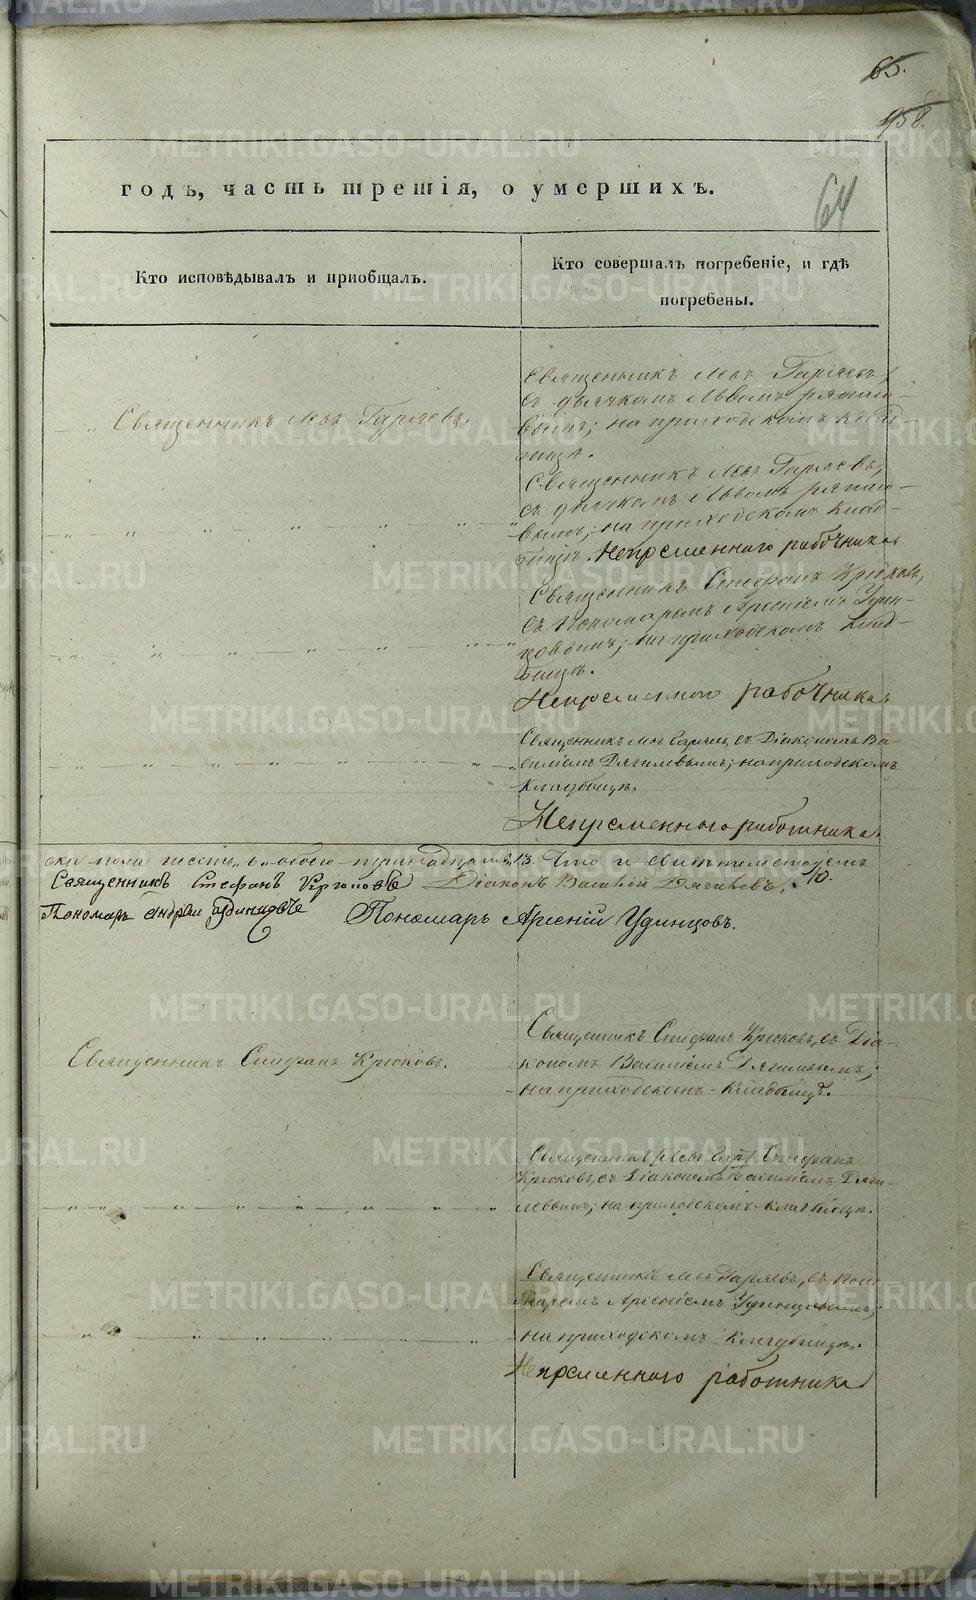 65.
958.
64
годъ, часть третія, о умершихъ.
Кто исповѣдывалъ и приобщалъ.
Кто совершалъ погребеніе, и гдѣ
погребены.
Священникъ Левъ Гаряевъ,
Священникъ Левъ Гаряевъ,
съ дьячкомъ Львомъ
вымъ; на приходскомъ клад-
бищѣ.
Священникъ Левъ Гаряевъ,
съ дьячкомъ Львомъ
вымъ; на приходскомъ клад-
бищѣ. Непременнаго работника.
Священникъ Стефанъ Крюковъ,
съ Пономаремъ Арсеніемъ Удин-
цовымъ; на приходскомъ клад-
бищѣ.
Непременного работника.
Священникъ Левъ Гаряевъ, съ Діакономъ Ва-
силіемъ Дягилевымъ; на приходскомъ
кладбищѣ.
Непременного работника.
ска пола шесть, а обоего тринадцать, 13. Что и свидѣтельствуемъ
Священникъ Стефанъ Крюковъ Діаконъ Василій Дягилевъ. 10.
Пономарь Андрей Удинцовъ Пономарь Арсеній Удинцовъ.
Священникъ Стефанъ Крюковъ.
Священникъ Стефанъ Крюковъ, съ Діа-
кономъ Василіемъ Дягилевымъ;
на приходскомъ кладбищѣ.
Священникъ Стефанъ
Крюковъ, съ Діакономъ Василіемъ Дяги-
левымъ; на приходскомъ кладбищѣ.
Священникъ Левъ Гаряевъ, съ Поно-
маремъ Арсеніемъ Удинцовымъ;
на приходскомъ кладбищѣ.
Непременного работника
METRIKI.GASO-URAL.RU